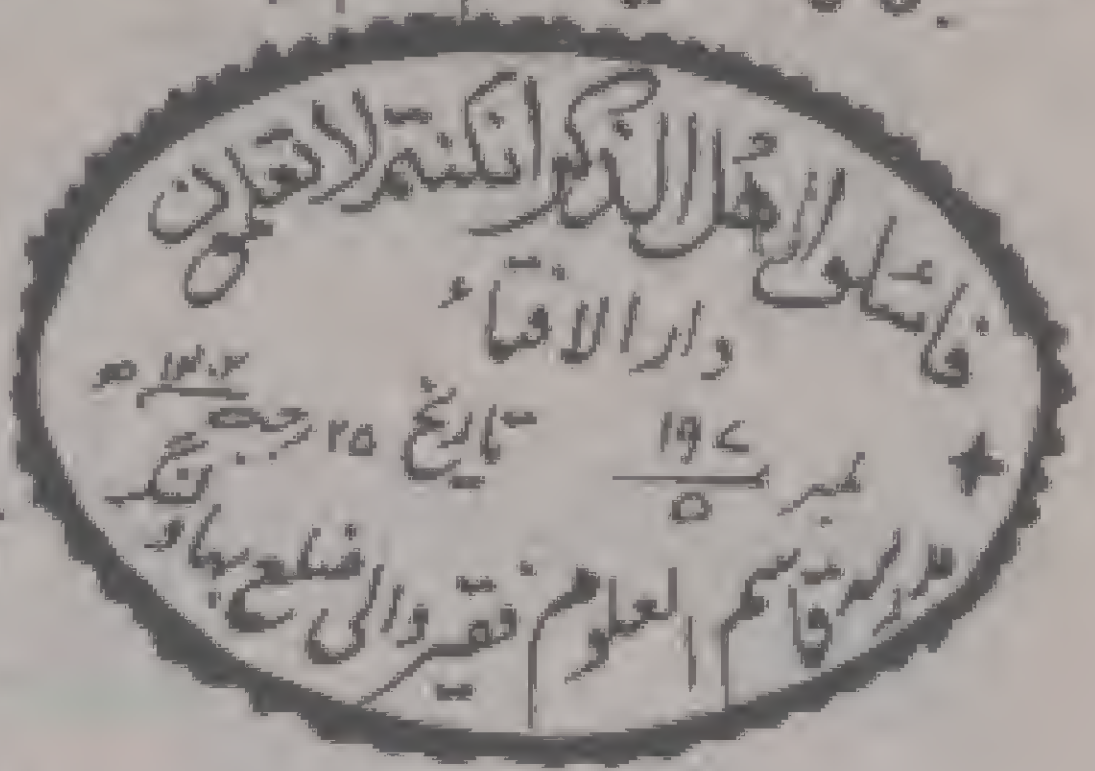 فاسئلوا اهل الذکر ان کنتم لا تعلمون
دار الافتاء
نمبر ۱۹۷/۵ تاریخ ۲۵ رجب ۱۴۰۳ھ
مدرسہ قاسم العلوم فقیر والی ضلع بہاولنگر